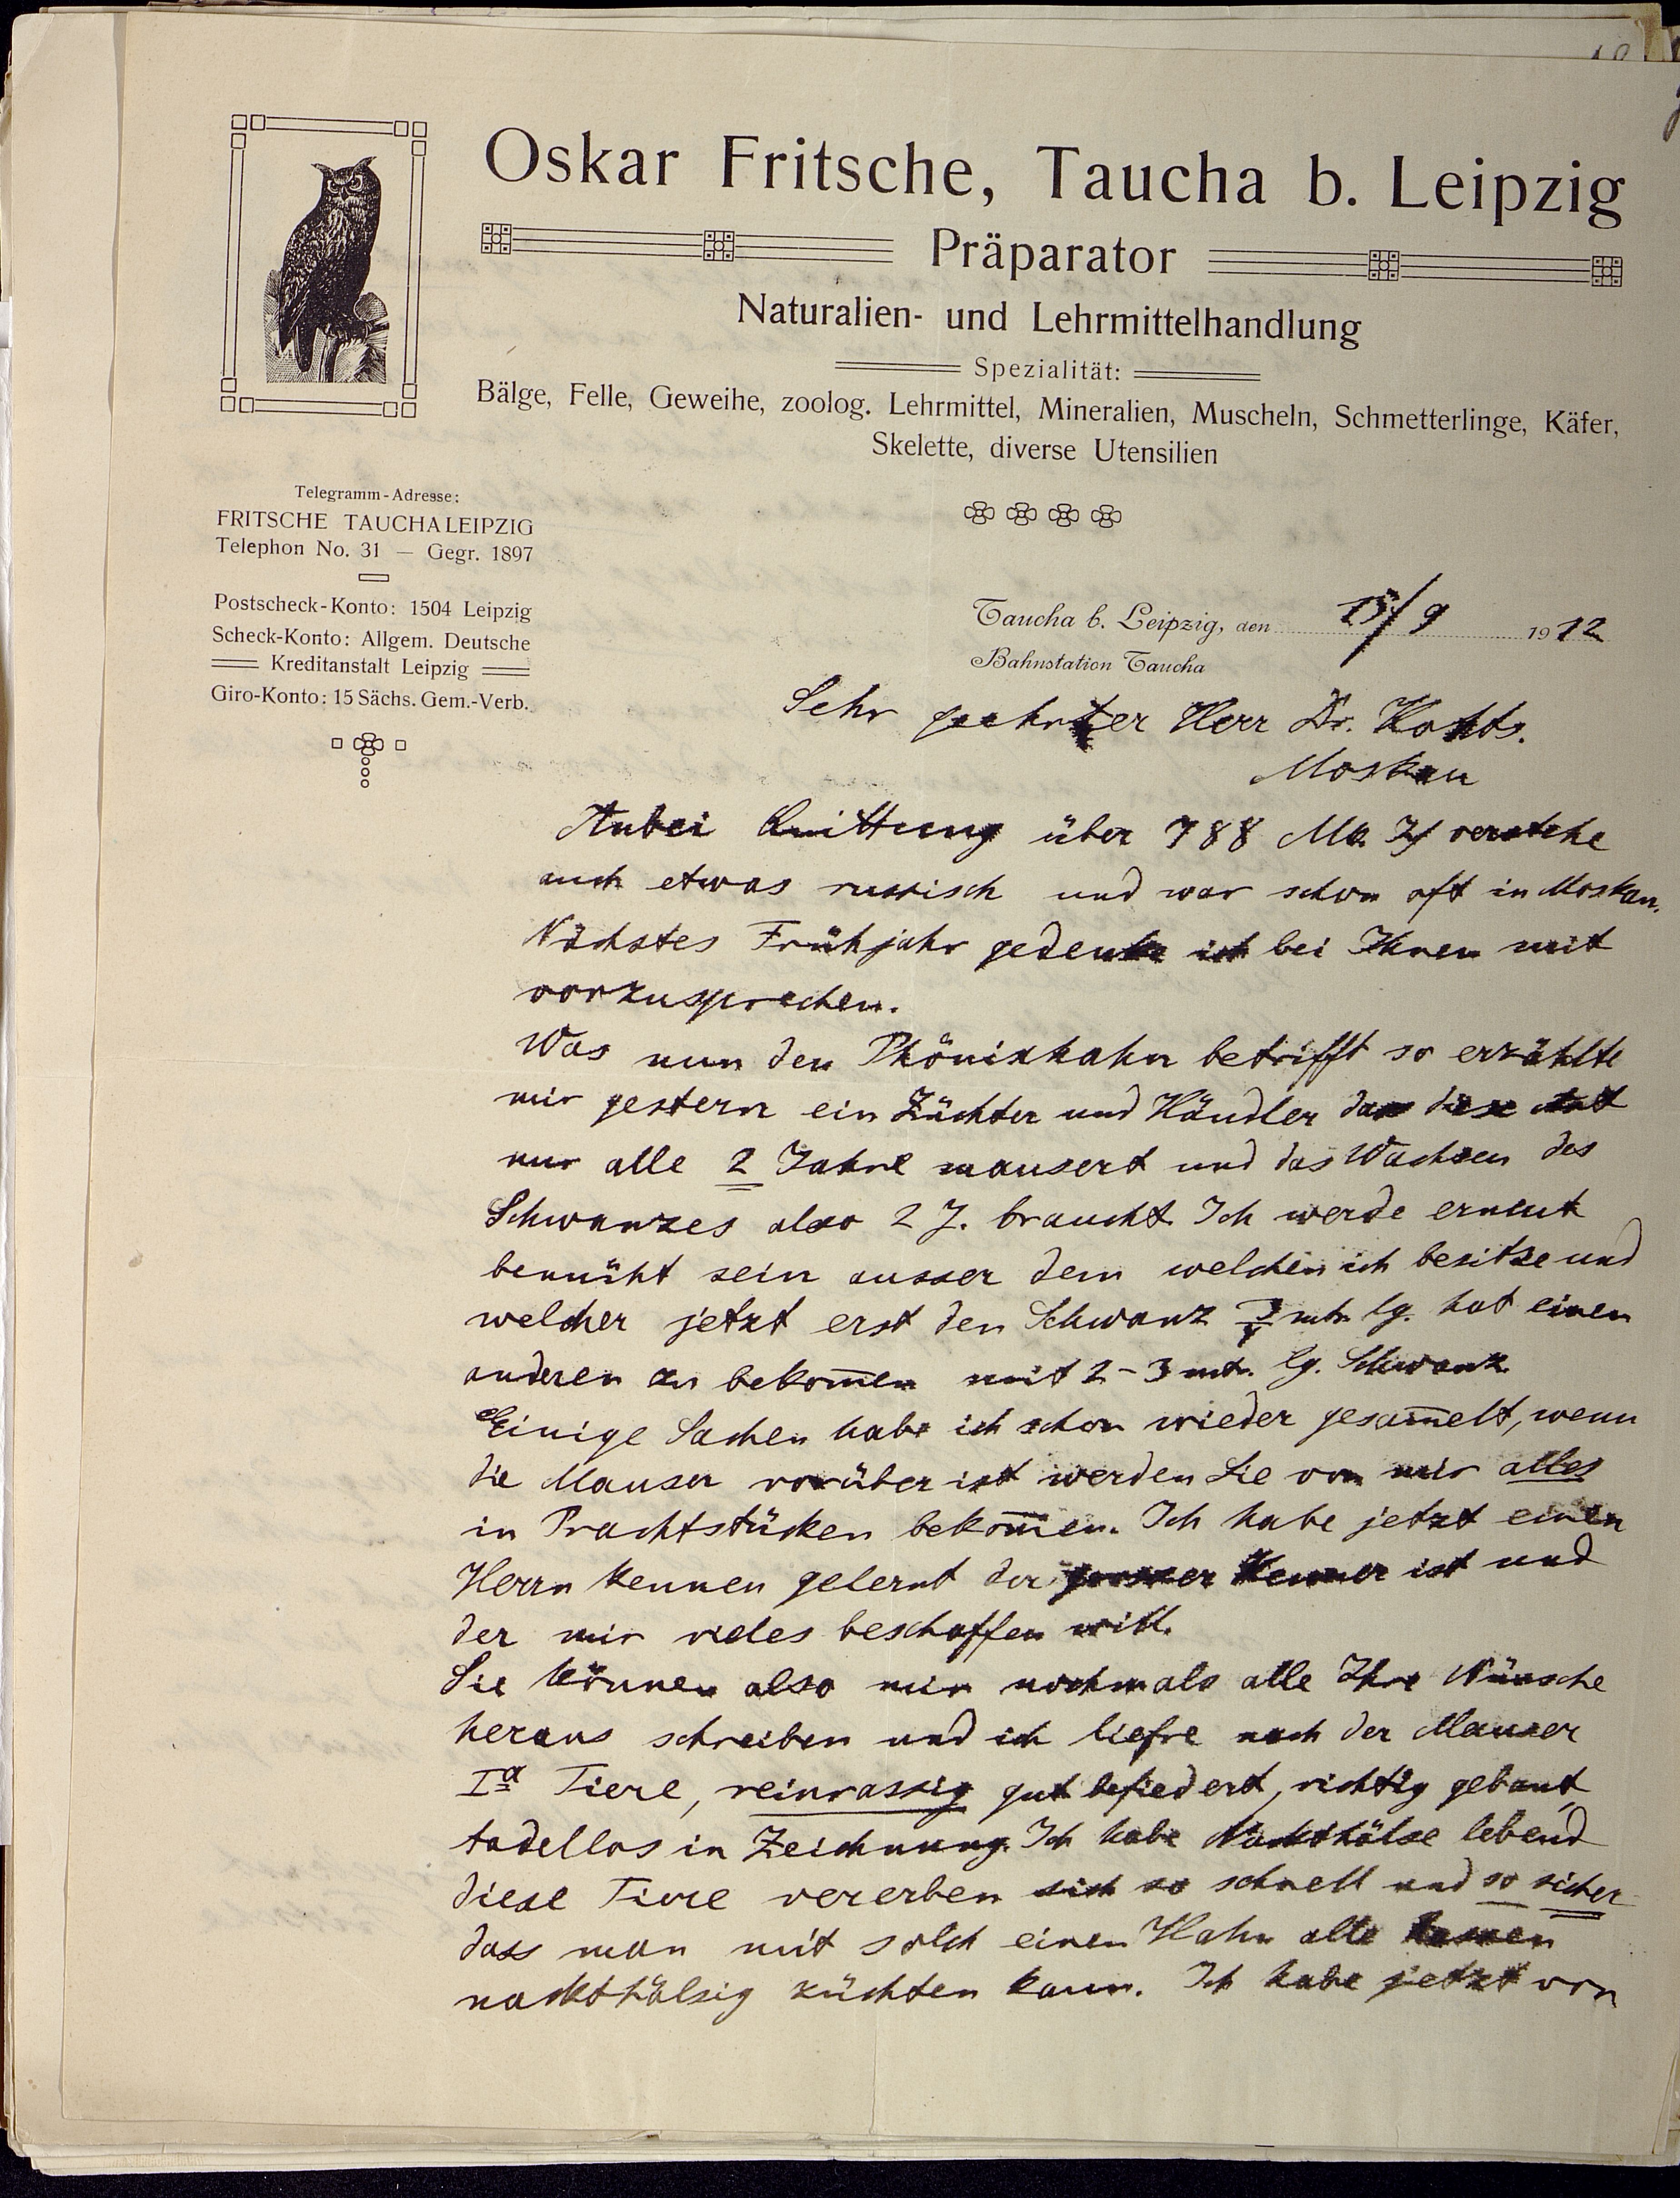 Oskar Fritsche, Taucha b. Leipzig
Präparator
Naturalien- und Lehrmittelhandlung
Spezialität:
Bälge, Felle, Geweihe, zoolog. Lehrmittel, Mineralien, Muscheln, Schmetterlinge, Käfer,
Skelette, diverse Utensilien
Telegramm-Adresse:
FRITSCHE TAUCHALEIPZIG
Telephon No. 31 — Gegr. 1897
Postscheck-Konto: 1504 Leipzig
Scheck-Konto: Allgem. Deutsche
Kreditanstalt Leipzig
Giro-Konto: 15 Sächs. Gem.-Verb.
Taucha b. Leipzig, den 15/9 1912
Bahnstation Taucha
Sehr geehrter Herr Dr. Kohts.
Moskau
Anbei Quittung über 788 Mk. verstehe
auch etwas russisch und war schon oft in Moskau.
Nächstes Frühjahr gedenke ich bei Ihnen mit
vorzusprechen.
Was nun den Phönixhahn betrifft so erzählte
mir gestern ein Züchter und Händler dass diese Art
nur alle 2 Jahre mausert und das Wachsen des
Schwanzes also 2 J. braucht. Ich werde erneut
bemüht sein ausser dem welchen ich besitze und
welcher jetzt erst den Schwanz mtr. lg. hat einen
anderen zu bekom̄en mit 2-3 mtr. lg. Schwanz
Einige Sachen habe ich schon wieder gesam̄elt, wenn
die Mauser vorüber ist werden Sie von mir alles
in Prachtstücken bekom̄en. Ich habe jetzt einen
Herrn kennen gelernt der grosser Kenner ist und
der mir vieles beschaffen will.
Sie können also mir nochmals alle Ihre Wünsche
heraus schreiben und ich liefre nach der Mauser
Iª Tiere, reinrassig gut befiedert, richtig gebaut,
tadellos in Zeichnung. Ich habe Nackthälse lebend
diese Tiere vererben sich so schnell und so sicher
dass man mit solch einen Hahn alle Rassen
nackthälsig züchten kann. Ich habe jetzt von